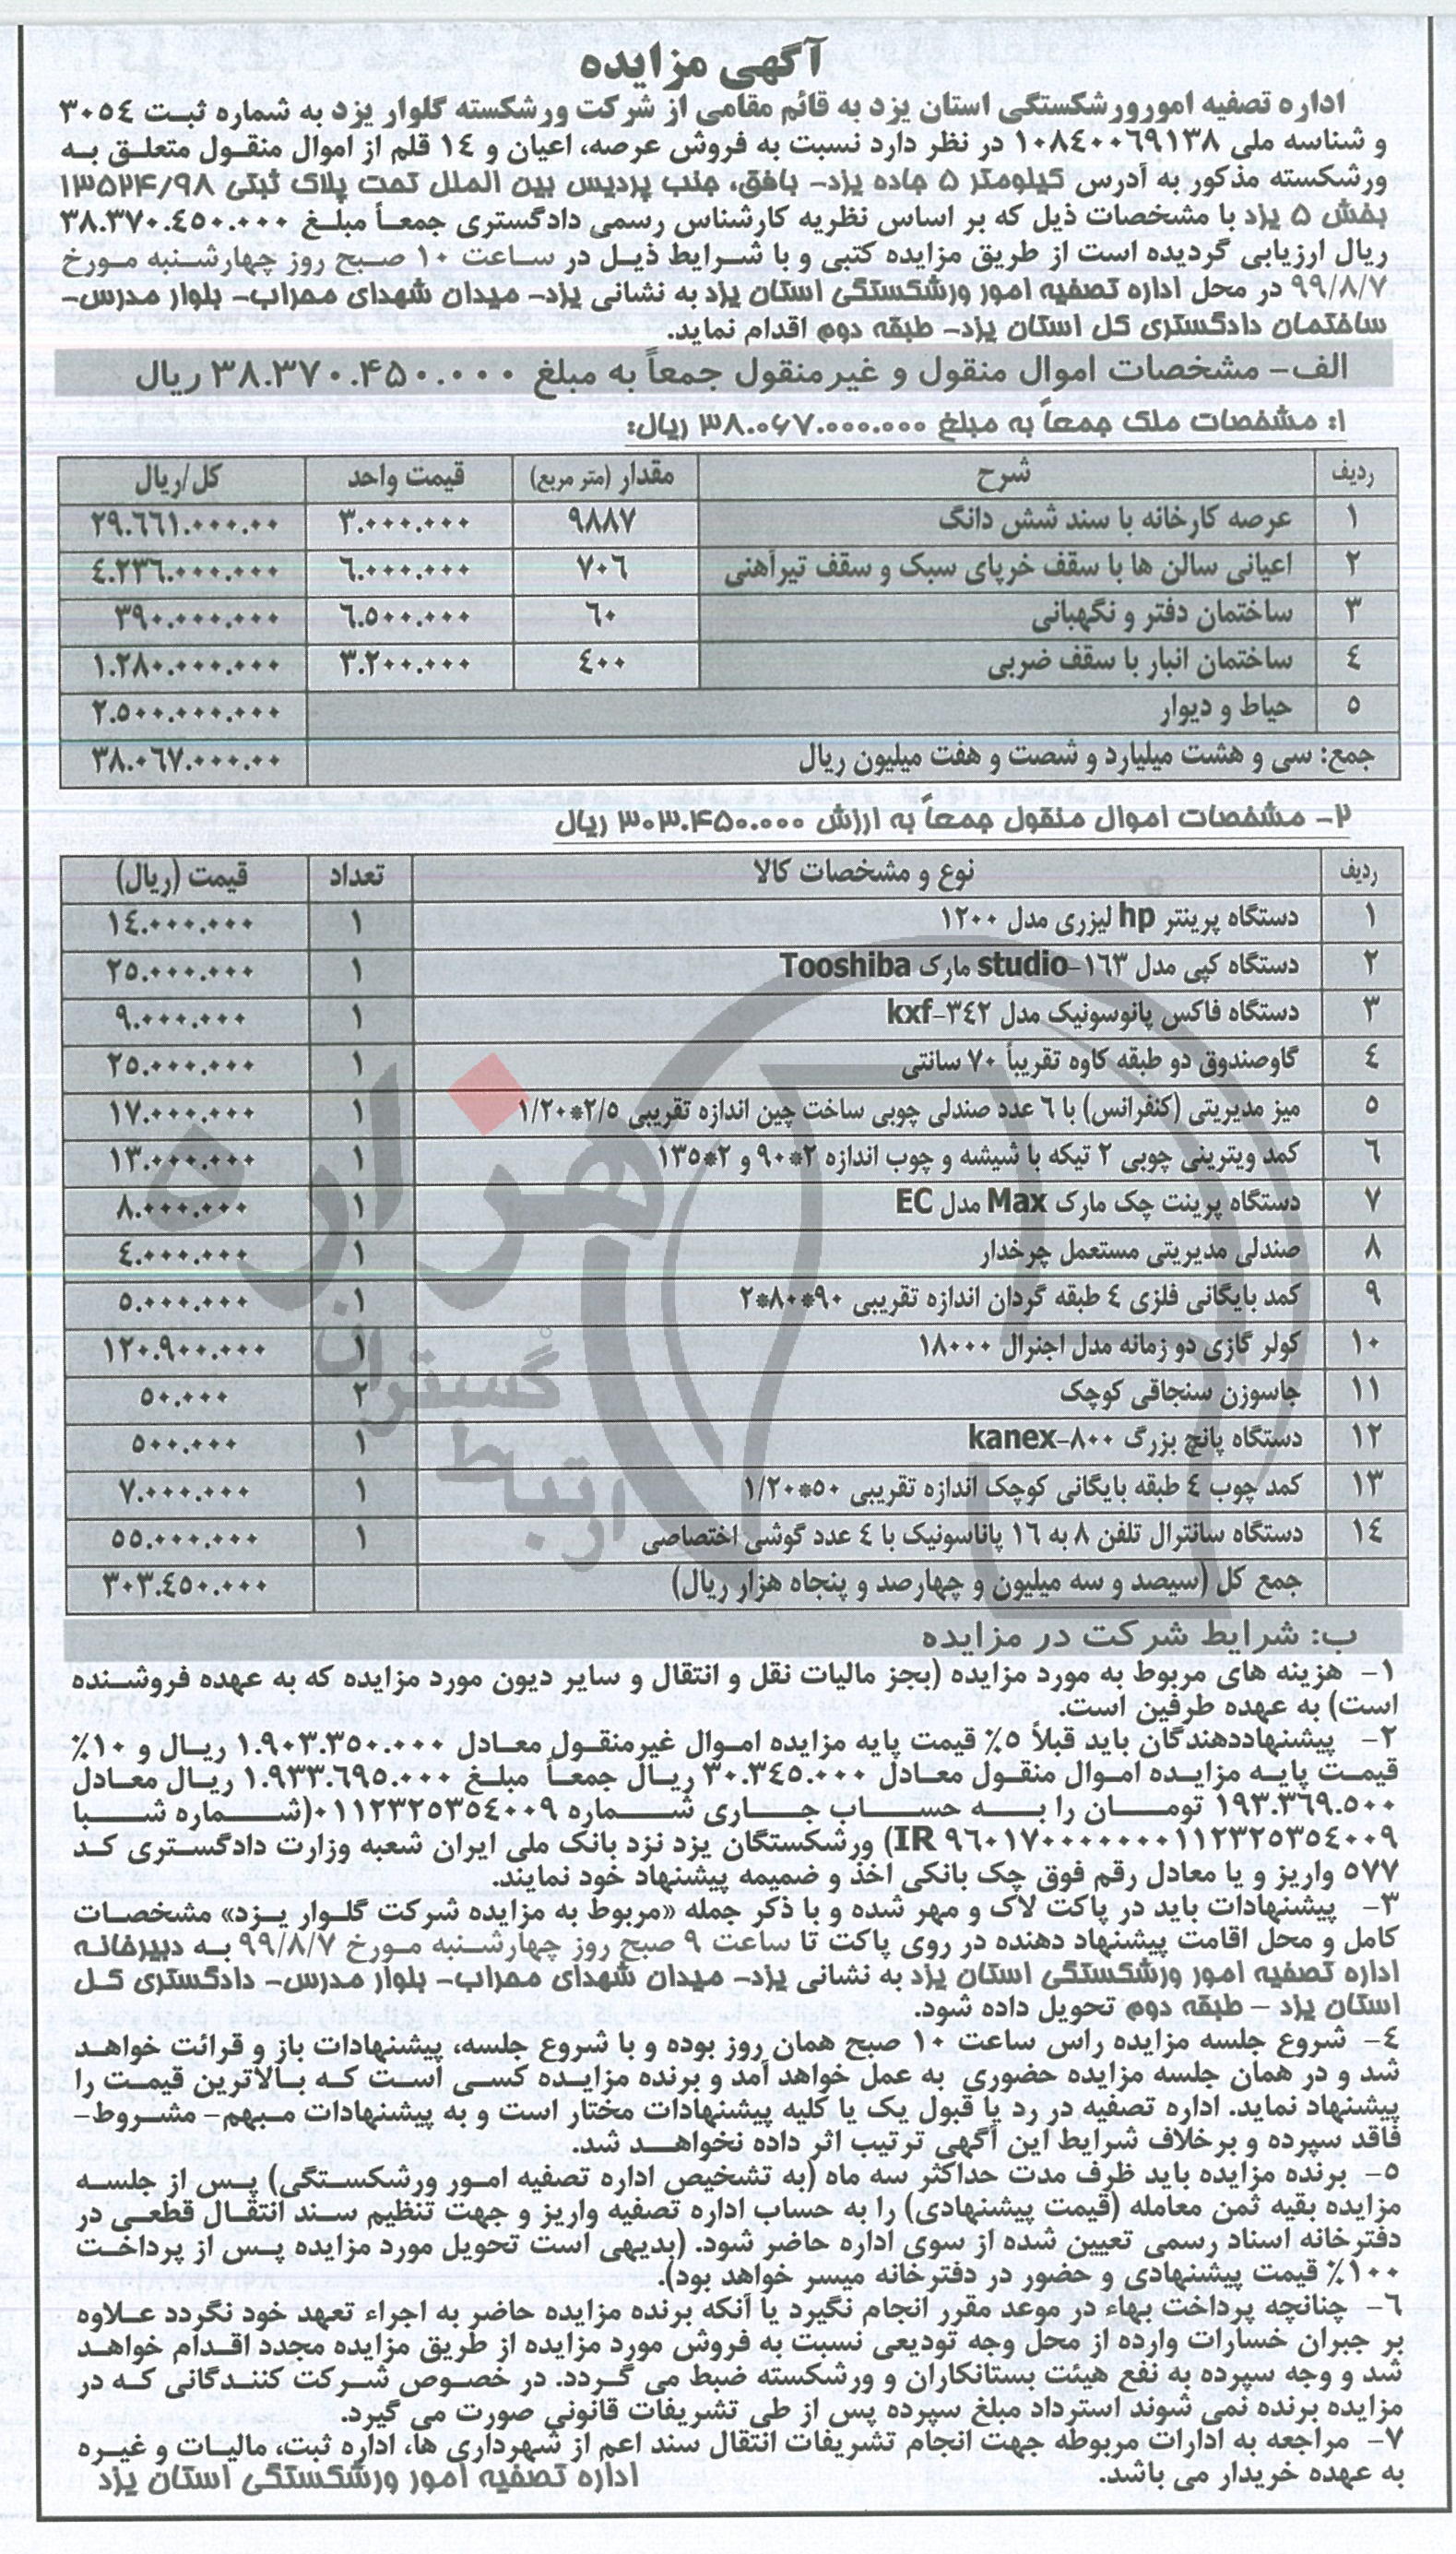 آگهی مزایده
اداره تصفیه امورورشکستگی استان یزد به قائم مقامی از شرکت ورشکسته گلوار یزد به شماره ثبت ۳۰۵۴
و شناسه ملی ۱۰۸۴۰۰۶۹۱۳۸ در نظر دارد نسبت به فروش عرصه، اعیان و ۱۴ قلم از اموال منقول متعلق به
ورشکسته مذکور به آدرس کیلومتر ۵ جاده یزد- بافق، جنب پردیس بین الملل تحت پلاک ثبتی ۱۳۵۲۴/۹۸
بخش ۵ یزد با مشخصات ذیل که بر اساس نظریه کارشناس رسمی دادگستری جمعاً مبلغ ۳۸.۳۷۰.۴۵۰.۰۰۰
ریال ارزیابی گردیده است از طریق مزایده کتبی و با شرایط ذیل در ساعت ۱۰ صبح روز چهارشنبه مورخ
۹۹/۸/۷ در محل اداره تصفیه امور ورشکستگی استان یزد به نشانی یزد- میدان شهدای محراب- بلوار مدرس-
ساختمان دادگستری کل استان یزد- طبقه دوم اقدام نماید.
الف- مشخصات اموال منقول و غیرمنقول جمعاً به مبلغ ۳۸.۳۷۰.۴۵۰.۰۰۰ ریال
۱: مشخصات ملک جمعاً به مبلغ ۳۸.۰۶۷.۰۰۰.۰۰۰ ریال:
ردیف شرح مقدار (متر مربع) قیمت واحد کل/ریال
۱ عرصه کارخانه با سند شش دانگ ۹۸۸۷ ۳.۰۰۰.۰۰۰ ۲۹.۶۶۱.۰۰۰.۰۰
۲ اعیانی سالن ها با سقف خرپای سبک و سقف تیرآهنی ۷۰۶ ۶.۰۰۰.۰۰۰ ۴.۲۳۶.۰۰۰.۰۰۰
۳ ساختمان دفتر و نگهبانی ۶۰ ۶.۵۰۰.۰۰۰ ۳۹۰.۰۰۰.۰۰۰
۴ ساختمان انبار با سقف ضربی ۴۰۰ ۳.۲۰۰.۰۰۰ ۱.۲۸۰.۰۰۰.۰۰۰
۵ حیاط و دیوار ۲.۵۰۰.۰۰۰.۰۰۰
جمع: سی و هشت میلیارد و شصت و هفت میلیون ریال ۳۸.۰۶۷.۰۰۰.۰۰
۲- مشخصات اموال منقول جمعاً به ارزش ۳۰۳.۴۵۰.۰۰۰ ریال
ردیف نوع و مشخصات کالا تعداد قیمت (ریال)
۱ دستگاه پرینتر hp لیزری مدل ۱۲۰۰ ۱ ۱۴.۰۰۰.۰۰۰
۲ دستگاه کپی مدل studio-۱۶۳ مارک Tooshiba ۱ ۲۵.۰۰۰.۰۰۰
۳ دستگاه فاکس پانوسونیک مدل kxf-۳۴۲ ۱ ۹.۰۰۰.۰۰۰
۴ گاوصندوق دو طبقه کاوه تقریباً ۷۰ سانتی ۱ ۲۵.۰۰۰.۰۰۰
۵ میز مدیریتی (کنفرانس) با ۶ عدد صندلی چوبی ساخت چین اندازه تقریبی ۲/۵*۱/۲۰ ۱ ۱۷.۰۰۰.۰۰۰
۶ کمد ویترینی چوبی ۲ تیکه با شیشه و چوب اندازه ۲*۹۰ و ۲*۱۳۵ ۱ ۱۳.۰۰۰.۰۰۰
۷ دستگاه پرینت چک مارک Max مدل EC ۱ ۸.۰۰۰.۰۰۰
۸ صندلی مدیریتی مستعمل چرخدار ۱ ۴.۰۰۰.۰۰۰
۹ کمد بایگانی فلزی ۴ طبقه گردان اندازه تقریبی ۹۰*۸۰*۲ ۱ ۵.۰۰۰.۰۰۰
۱۰ کولر گازی دو زمانه مدل اجنرال ۱۸۰۰۰ ۱ ۱۲۰.۹۰۰.۰۰۰
۱۱ جاسوزن سنجاقی کوچک ۲ ۵۰.۰۰۰
۱۲ دستگاه پانچ بزرگ kanex-۸۰۰ ۱ ۵۰۰.۰۰۰
۱۳ کمد چوب ۴ طبقه بایگانی کوچک اندازه تقریبی ۵۰*۱/۲۰ ۱ ۷.۰۰۰.۰۰۰
۱۴ دستگاه سانترال تلفن ۸ به ۱۶ پاناسونیک با ۴ عدد گوشی اختصاصی ۱ ۵۵.۰۰۰.۰۰۰
جمع کل (سیصد و سه میلیون و چهارصد و پنجاه هزار ریال) ۳۰۳.۴۵۰.۰۰۰
هزاران
گستران
ارتباط
ب: شرایط شرکت در مزایده
۱- هزینه های مربوط به مورد مزایده (بجز مالیات نقل و انتقال و سایر دیون مورد مزایده که به عهده فروشنده
است) به عهده طرفین است.
۲- پیشنهاددهندگان باید قبلاً ۵٪ قیمت پایه مزایده اموال غیرمنقول معادل ۱.۹۰۳.۳۵۰.۰۰۰ ریال و ۱۰٪
قیمت پایه مزایده اموال منقول معادل ۳۰.۳۴۵.۰۰۰ ریال جمعاً مبلغ ۱.۹۳۳.۶۹۵.۰۰۰ ریال معادل
۱۹۳.۳۶۹.۵۰۰ تومان را به حساب جاری شماره ۰۱۱۲۳۲۵۳۵۴۰۰۹(شماره شبا
IR ۹۶۰۱۷۰۰۰۰۰۰۰۱۱۲۳۲۵۳۵۴۰۰۹) ورشکستگان یزد نزد بانک ملی ایران شعبه وزارت دادگستری کد
۵۷۷ واریز و یا معادل رقم فوق چک بانکی اخذ و ضمیمه پیشنهاد خود نمایند.
۳- پیشنهادات باید در پاکت لاک و مهر شده و با ذکر جمله «مربوط به مزایده شرکت گلوار یزد» مشخصات
کامل و محل اقامت پیشنهاد دهنده در روی پاکت تا ساعت ۹ صبح روز چهارشنبه مورخ ۹۹/۸/۷ به دبیرخانه
اداره تصفیه امور ورشکستگی استان یزد به نشانی یزد- میدان شهدای محراب- بلوار مدرس- دادگستری کل
استان یزد - طبقه دوم تحویل داده شود.
۴- شروع جلسه مزایده راس ساعت ۱۰ صبح همان روز بوده و با شروع جلسه، پیشنهادات باز و قرائت خواهد
شد و در همان جلسه مزایده حضوری به عمل خواهد آمد و برنده مزایده کسی است که بالاترین قیمت را
پیشنهاد نماید. اداره تصفیه در رد یا قبول یک یا کلیه پیشنهادات مختار است و به پیشنهادات مبهم- مشروط-
فاقد سپرده و برخلاف شرایط این آگهی ترتیب اثر داده نخواهد شد.
۵- برنده مزایده باید ظرف مدت حداکثر سه ماه (به تشخیص اداره تصفیه امور ورشکستگی) پس از جلسه
مزایده بقیه ثمن معامله (قیمت پیشنهادی) را به حساب اداره تصفیه واریز و جهت تنظیم سند انتقال قطعی در
دفترخانه اسناد رسمی تعیین شده از سوی اداره حاضر شود. (بدیهی است تحویل مورد مزایده پس از پرداخت
۱۰۰٪ قیمت پیشنهادی و حضور در دفترخانه میسر خواهد بود).
۶- چنانچه پرداخت بهاء در موعد مقرر انجام نگیرد یا آنکه برنده مزایده حاضر به اجراء تعهد خود نگردد علاوه
بر جبران خسارات وارده از محل وجه تودیعی نسبت به فروش مورد مزایده از طریق مزایده مجدد اقدام خواهد
شد و وجه سپرده به نفع هیئت بستانکاران و ورشکسته ضبط می گردد. در خصوص شرکت کنندگانی که در
مزایده برنده نمی شوند استرداد مبلغ سپرده پس از طی تشریفات قانونی صورت می گیرد.
۷- مراجعه به ادارات مربوطه جهت انجام تشریفات انتقال سند اعم از شهرداری ها، اداره ثبت، مالیات و غیره
به عهده خریدار می باشد.
اداره تصفیه امور ورشکستگی استان یزد